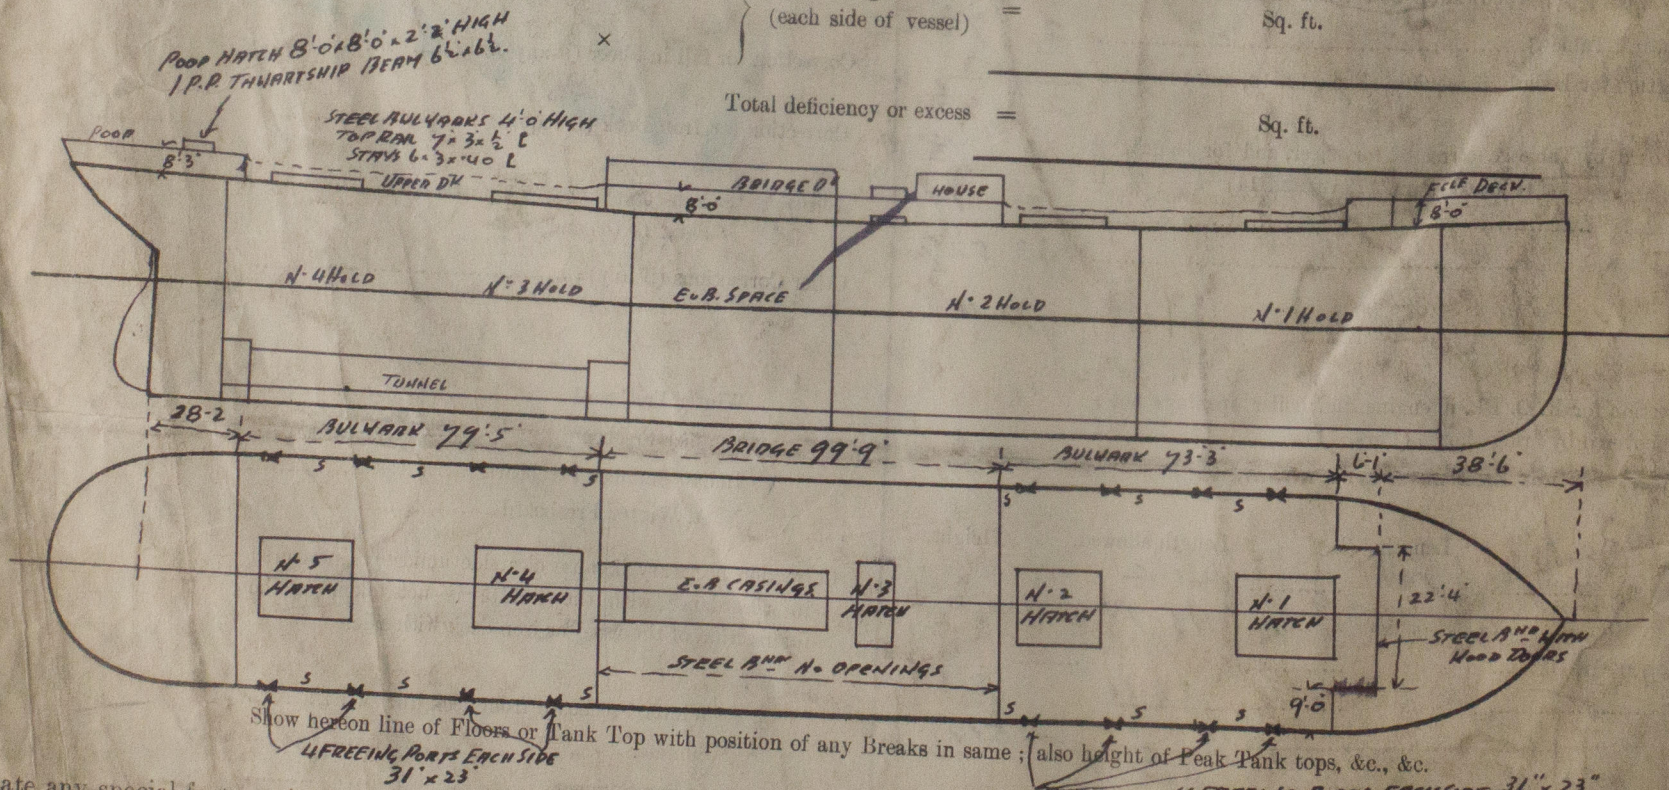 (each side of vessel) =
Sq. ft.
×
POOP HATCH 8'-0"x8'-0"x2'-2" HIGH
1 P.P. THWARTSHIP BEAM 6½x6½.
Total deficiency or excess =
Sq. ft.
STEEL BULWARKS 4'-0 HIGH
TOP RAIL 7x3x½ L
STAYS 6x3x.40 L
POOP
8'-3"
UPPER DK
BRIDGE DK
8'-0"
HOUSE
8'-0"
No 4 HOLD
No 3 HOLD
E & B. SPACE
No 2 HOLD
No 1 HOLD
TUNNEL
28-2
BULWARK 79'-5"
BRIDGE 99'-9"
BULWARK 73-3"
6-1"
38'-6"
S S S S S S
No 5
HATCH
No 4
HATCH
E & B CASINGS
No 3
HATCH
No 2
HATCH
No 1
HATCH
22'-4"
STEEL BHD WITH
WOOD DOORS
STEEL BHD NO OPENINGS
9'-0"
S S S S S S
Show hereon line of Floors or Tank Top with position of any Breaks in same; also height of Peak Tank tops, &c., &c.
4 FREEING PORTS EACH SIDE
31" x 23"
31" x 23"
ate any special